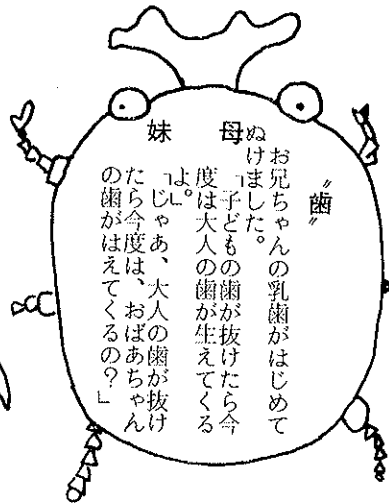 〝歯〟
お兄ちゃんの乳歯がはじめて
ぬけました。
母「子どもの歯が抜けたら今
度は大人の歯が生えてくる
よ。」
妹「じゃあ、大人の歯が抜け
たら今度は、おばあちゃん
の歯がはえてくるの？」